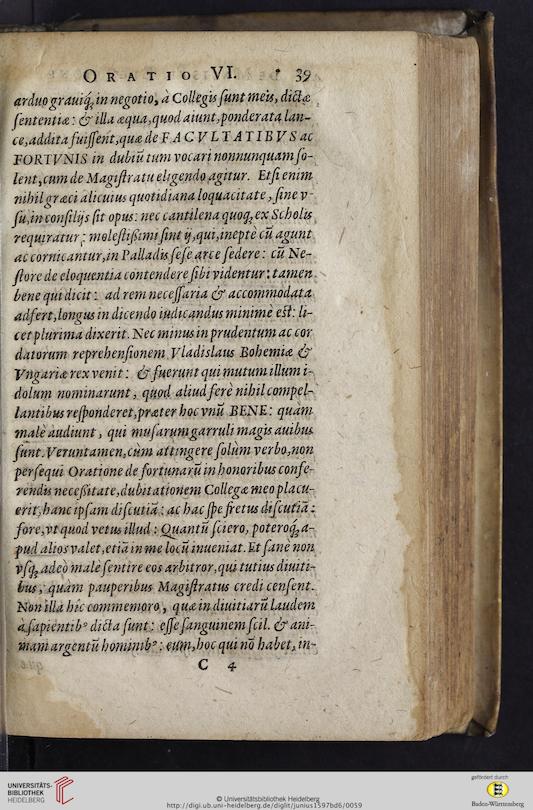 ORATIO VI. 39
arduo grauiq́;, in negotio, à Collegis sunt meis, dictæ
sententiæ: & illa æqua, quod aiunt, ponderata lan-
ce, addita fuissent, quæ de FACVLTATIBVS ac
FORTVNIS in dubiũ tum vocari nonnunquam so-
lent, cum de Magistratu eligendo agitur. Etsi enim
nihil græci alicuius quotidiana loquacitate, sine v-
su, in consilijs sit opus: nec cantilena quoq;, ex Scholis
requiratur: molestißimi sint ij, qui, ineptè cũ agunt
ac cornicantur, in Palladis sese arce sedere: cũ Ne-
store de eloquentia contendere sibi videntur: tamen
bene qui dicit: ad rem necessaria & accommodata
adfert, longus in dicendo iudicandus minimè est: li-
cet plurima dixerit. Nec minus in prudentum ac cor
datorum reprehensionem Vladislaus Bohemiæ &
Vngariæ rex venit: & fuerunt qui mutum illum i-
dolum nominarunt, quod aliud ferè nihil compel-
lantibus responderet, præter hoc vnũ BENE: quàm
malè audiunt, qui musarum garruli magis auibus
sunt. Veruntamen, cùm attingere solùm verbo, non
persequi Oratione de fortunarũ in honoribus confe-
rendis neceßitate, dubitationem Collegæ meo placu-
erit, hanc ipsam discutiã: ac hac spe fretus discutiã:
fore, vt quod vetus illud: Quantũ sciero, poteroq́;, a-
pud alios valet, etiã in me locũ inueniat. Et sanè non
vsq; adeò malè sentire eos arbitror, qui tutius diuiti-
bus, quàm pauperibus Magistratus credi censent.
Non illa hîc commemoro, quæ in diuitiarũ laudem
à sapientibꝰ dicta sunt: esse sanguinem scil. & ani-
mam argentũ hominibꝰ: eum, hoc qui nõ habet, in-
C 4
UNIVERSITÄTS-
BIBLIOTHEK
HEIDELBERG
© Universitätsbibliothek Heidelberg
http://digi.ub.uni-heidelberg.de/diglit/junius1597bd6/0059
gefördert durch
Baden-Württemberg